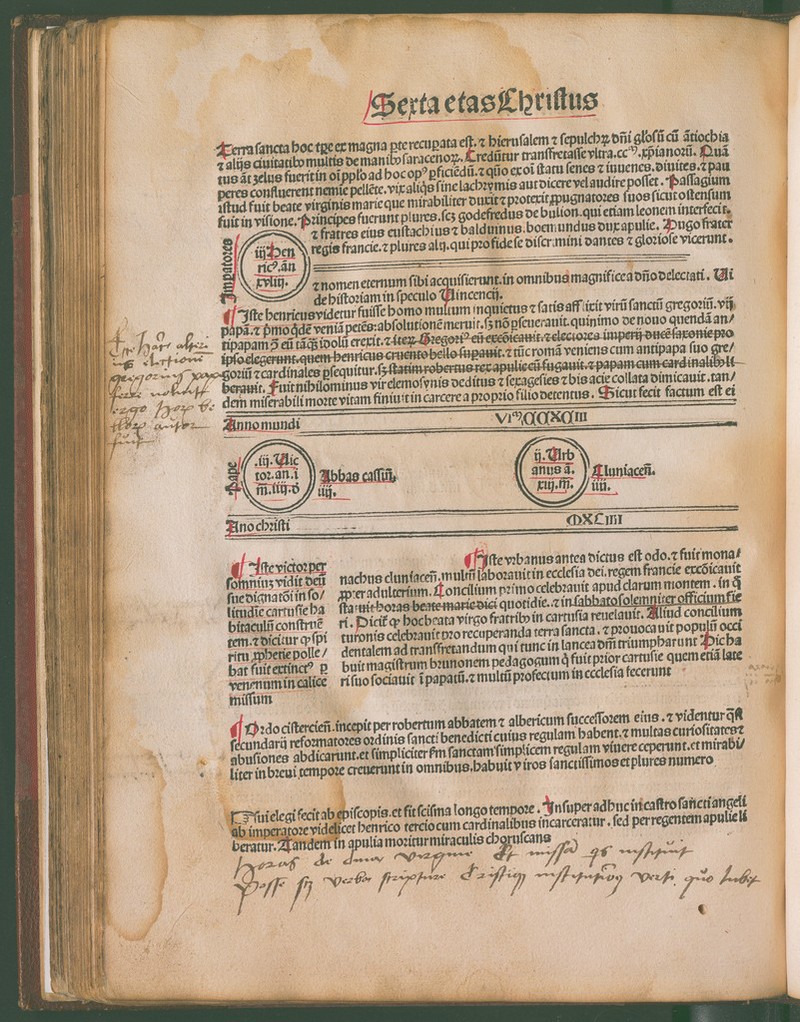 Sexta etas Christus
Terra sancta hoc tpe ex magna pte recuperata est. ⁊ hierusalem ⁊ sepulchꝝ dñi glosũ cũ ãtiochia
⁊ alijs ciuitatibꝰ multis de manibꝰ saracenoꝝ. Credũtur transfretasse vltra .ccᵐ. xp̃ianoꝝ. Quã
tus ãt zelus fuerit in oĩ pplo ad hoc opꝰ pficiẽdũ. ⁊ quõ ex oĩ statu senes ⁊ iuuenes. diuites. ⁊ pau
peres confluerent nemĩe pellẽte. vix aliqs sine lachrymis aut dicere vel audire posset. Passagium
istud fuit beate virginis marie que mirabiliter duxit ⁊ protexit ꝓpugnatores suos sicut ostensum
fuit in visione. Principes fuerunt plures. scꝫ godefredus de bulion. qui etiam leonem interfecit.
⁊ fratres eius eustachius ⁊ balduinus. boemundus dux apulie. Hugo frater
regis francie. ⁊ plures alij. qui pro fide se discrimini dantes ⁊ gloriose vicerunt.
Imperatores
iij. Hen
ricꝰ. an
xviij.
⁊ nomen eternum sibi acquisierunt. in omnibus magnifice a dño delectati. Vi
de historiam in speculo Vincencij.
¶ Iste henricus videtur fuisse homo multum inquietus ⁊ satis afflixit virũ sanctũ gregoriũ. vij
papã. ⁊ pꝛimo qdẽ veniã petẽs: absolutionẽ meruit. sꝫ nõ pseuerauit. quinimo de nouo quendã an/
tipapam ꝯ eũ tãqꝫ idolũ erexit. ⁊ iteꝝ Gregorꝰ eũ excõicauit. ⁊ electores imperij ducẽ saxonie pro
ipso elegerunt. quem henricus cruento bello supauit. ⁊ tũc romã veniens cum antipapa suo gre/
goriũ ⁊ cardinales psequitur. sꝫ statim robertus rex apulie eũ fugauit. ⁊ papam cum cardinalibꝰ li
berauit. Fuit nihilominus vir elemosynis deditus ⁊ sexagesies ⁊ bis acie collata dimicauit. tan/
dem miserabili morte vitam finiuit in carcere a proprio filio detentus. Sicut fecit factum est ei
Anno mundi VIᵐCCXCIII
Pape
.iij. Vic
tor. an. i
m̃. iiij. d
Abbas cassiñ.
iiij.
ij. Vrb
anus ã.
xiij. m̃.
Cluniaceñ.
iiij.
Ano christi MXCIIII
¶ Iste victor per
somniuz vidit deũ
sue dignatõi in so/
litudĩe cartusie ha
bitaculũ construẽ
tem. ⁊ dicitur ꝙ spi
ritu ꝓphetie polle/
bat fuit extinctꝰ p
venenum in calice
missum
¶ Iste vrbanus antea dictus est odo. ⁊ fuit mona/
nachus cluniaceñ. multũ laborauit in ecclesia dei. regem francie excõicauit
ꝓpter adulterium. Concilium primo celebrauit apud clarum montem. in q̃
statuit horas beate marie dici quotidie. ⁊ in sabbato solemniter officium fie
ri. Dicit ꝙ hoc beata virgo fratribꝰ in cartusia reuelauit. Aliud concilium
turonis celebrauit pro recuperanda terra sancta. ⁊ prouocauit populũ occi
dentalem ad transfretandum qui tunc in lancea dñi triumpharunt Hic ha
buit magistrum brunonem pedagogum q̃ fuit prior cartusie quem etiã late
ri suo sociauit ĩ papatũ. ⁊ multũ profectum in ecclesia fecerunt
¶ Ordo cistercieñ. incepit per robertum abbatem ⁊ albericum successorem eius. ⁊ videntur q̃si
secundarij reformatores ordinis sancti benedicti cuius regulam habent. ⁊ multas curiositates ⁊
abusiones abdicarunt. et simpliciter fm̃ sanctam simplicem regulam viuere ceperunt. et mirabi/
liter in breui tempore creuerunt in omnibus. habuit viros sanctissimos et plures numero
sui elegi fecit ab episcopis. et fit scisma longo tempore. Insuper adhuc in castro sancti angeli
ab imperatore videlicet henrico tercio cum cardinalibus incarceratur. sed per regentem apulie li
beratur. Tandem in apulia moritur miraculis choruscans
Horas de diua virgine Et missã qs instituit
Posse verba scripture Cristiqꝫ verti quo lubet